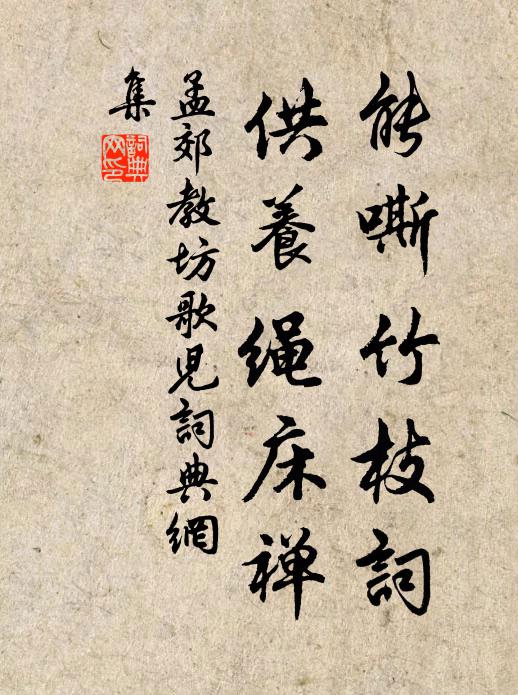 能嘶竹枝詞
供養绳床禅
孟郊教坊歌兒詞典網
集
詞典網印